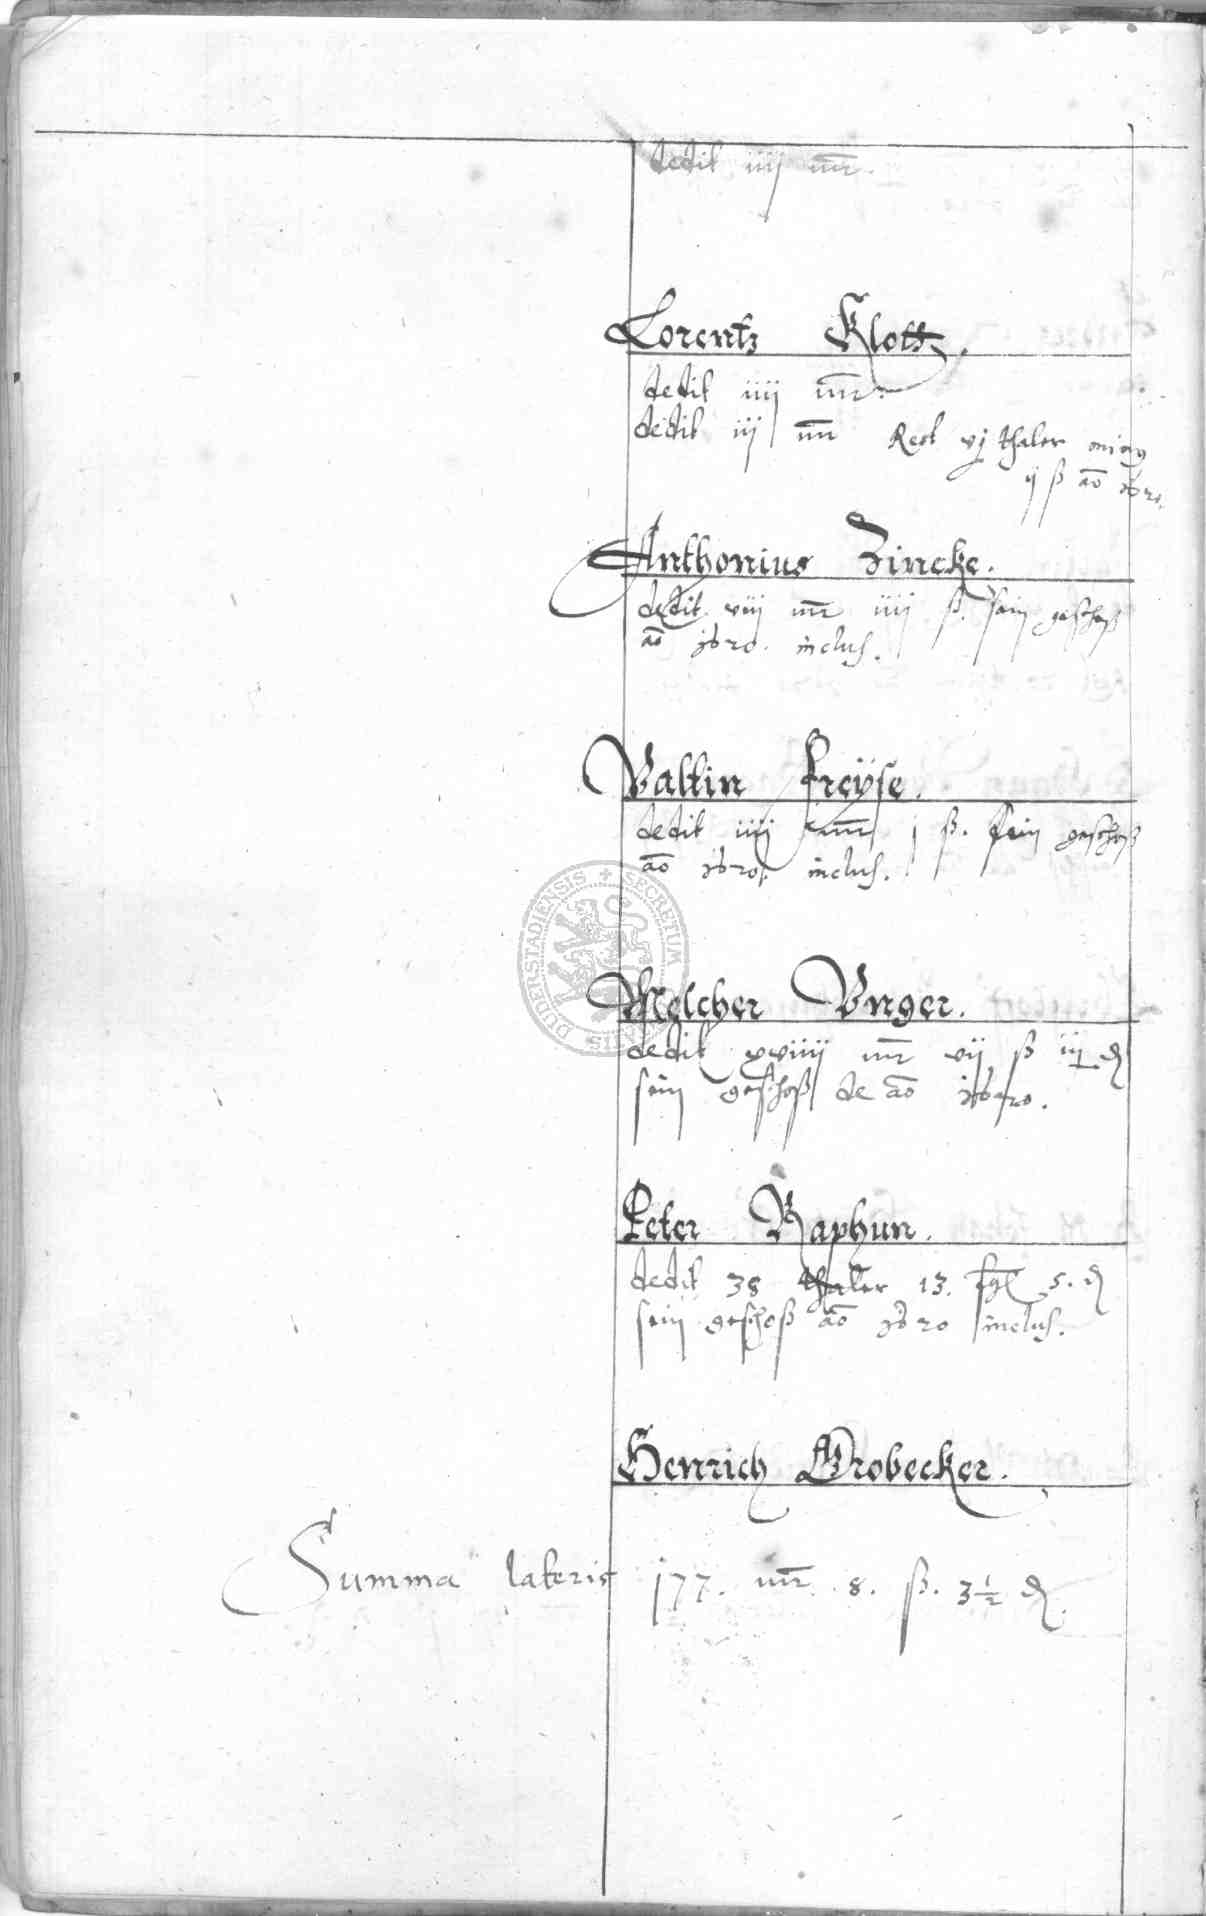 dedit iiij mr.
Lorentz Klott.
dedit iiij mr.
dedit iij mr Rest vj thaler
ij ß ao 1620.
Anthonius Zincke.
dedit viij mr iiij ß. sein geschoß
ao 1620. inclus.
Valtin Freyse.
dedit iiij mr j ß. sein geschoß
ao 1620. inclus.
DUDERSTADIENSIS + SECRETUM
Melcher Vnger.
dedit xviiij mr vij ß iij ₰
sein geschoß de ao 1620.
Peter Raphun.
dedit 38 thaler 13. fgl 5. ₰
sein geschoß ao 1620 inclus.
Henrich Grobecker.
Summa lateris 177. mr. 8. ß. 3 1/2 ₰.